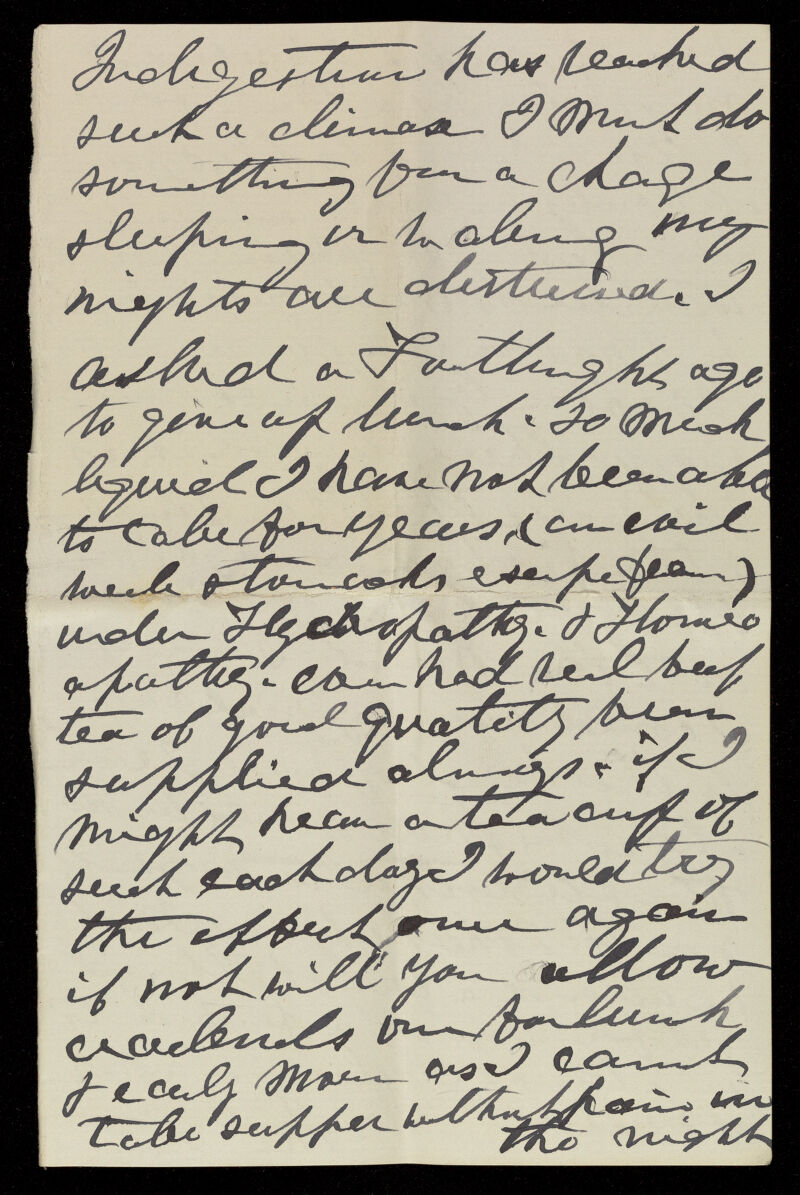 Indigestion has reached
such a climax I must do
something for a chage
sleeping or waking my
nights are distressed. I
asked a Forthnight ago
to give up lunch. so much
liquid I have not been able
to take for years, (an evil
weak stomachs escape from)
under Hydropathy. & Homeo
apathy. even had real beef
tea of good quatity been
supplied always. if I
might have a tea cup of
such each day I would try
the effect once again
if not will you allow
for lunch
& early Morn as I cannot
take supper without pain in
the night